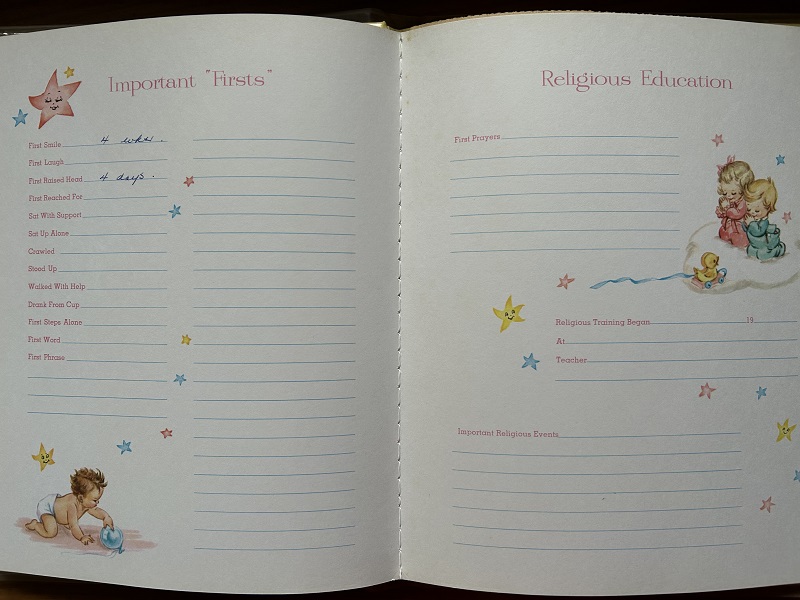 Important "Firsts"
First Smile 4 wks.
First Laugh
First Raised Head 4 days.
First Reached For
Sat With Support
Sat Up Alone
Crawled
Stood Up
Walked With Help
Drank From Cup
First Steps Alone
First Word
First Phrase
Religious Education
First Prayers
Religious Training Began 19
At
Teacher
Important Religious Events